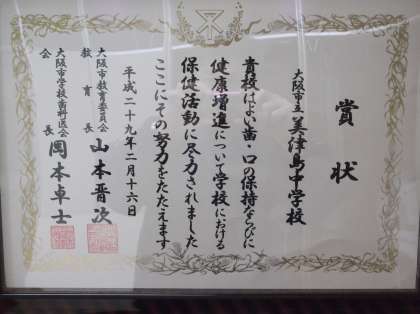 賞状
大阪市立美津島中学校
貴校はよい歯・口の保持ならびに
健康増進について学校における
保健活動に尽力されました
ここにその努力をたたえます
平成二十九年二月十六日
大阪市教育委員会
教育長 山本晋次
大阪市学校歯科医会
会長 岡本卓士